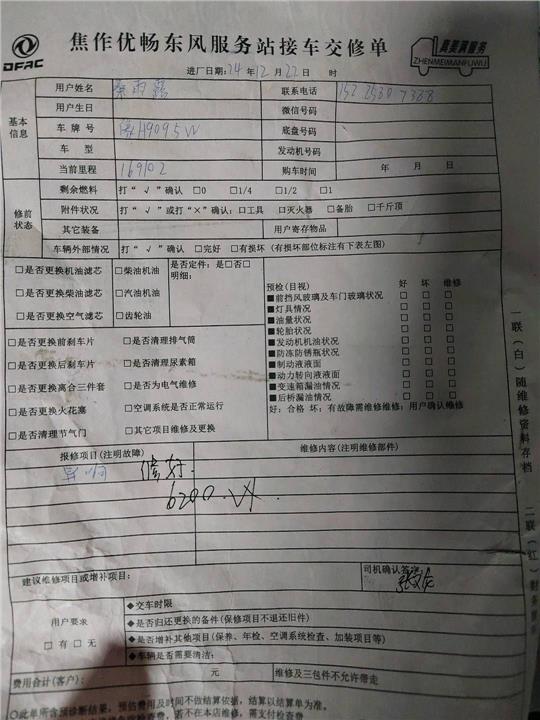 DFAC
焦作优畅东风服务站接车交修单
真美满服务
ZHENMEIMANFUWU
进厂日期:24年12月22日 时
基本信息
用户姓名 秦雨露 联系电话
用户生日 微信号码
车牌号 H9095W 底盘号码
车型 发动机号码
当前里程 169102 购车时间 年 月 日
修前状态
剩余燃料 打“√”确认 □0 □1/4 □1/2 □1
附件状况 打“√”或打“×”确认:□工具 □灭火器 □备胎 □千斤顶
其它装备 用户寄存物品
车辆外部情况 打“√”确认 □完好 □有损坏(有损坏部位标注有下表左图)
□是否更换机油滤芯 □柴油机油 是否定件:是□否□
明细:
□是否更换柴油滤芯 □汽油机油
□是否更换空气滤芯 □齿轮油
□是否更换前刹车片 □是否清理排气筒
□是否更换后刹车片 □是否清理尿素箱
□是否更换离合三件套 □是否为电气维修
□是否更换火花塞 □空调系统是否正常运行
□是否清理节气门 □其它项目维修及更换
预检(目视) 好 坏 维修
■前挡风玻璃及车门玻璃状况 □ □ □
■灯具情况 □ □ □
■油量状况 □ □ □
■轮胎状况 □ □ □
■发动机机油状况 □ □ □
■防冻防锈瓶状况 □ □ □
■制动液液面 □ □ □
■动力转向液液面 □ □ □
■变速箱漏油情况 □ □ □
■后桥漏油情况 □ □ □
好:合格 坏:有故障需维修维修:用户确认维修
报修项目(注明故障) 维修内容(注明维修部件)
异响 修好.
6200.
建议维修项目或增补项目:
司机确认签字:
用户要求
□有 □无
◆交车时限
◆是否归还更换的备件(保修项目不退还旧件)
◆是否增补其他项目(保养、年检、空调系统检查、加装项目等)
◆车辆是否需要清洁:
费用合计(客户): 元 维修及三包件不允许带走
◇此单所含预诊断结果,预估费用及时间不做结算依据,结算以结算单为准。
若不在本店维修,需支付检查费
一联(白)随维修资料存档
二联(红)